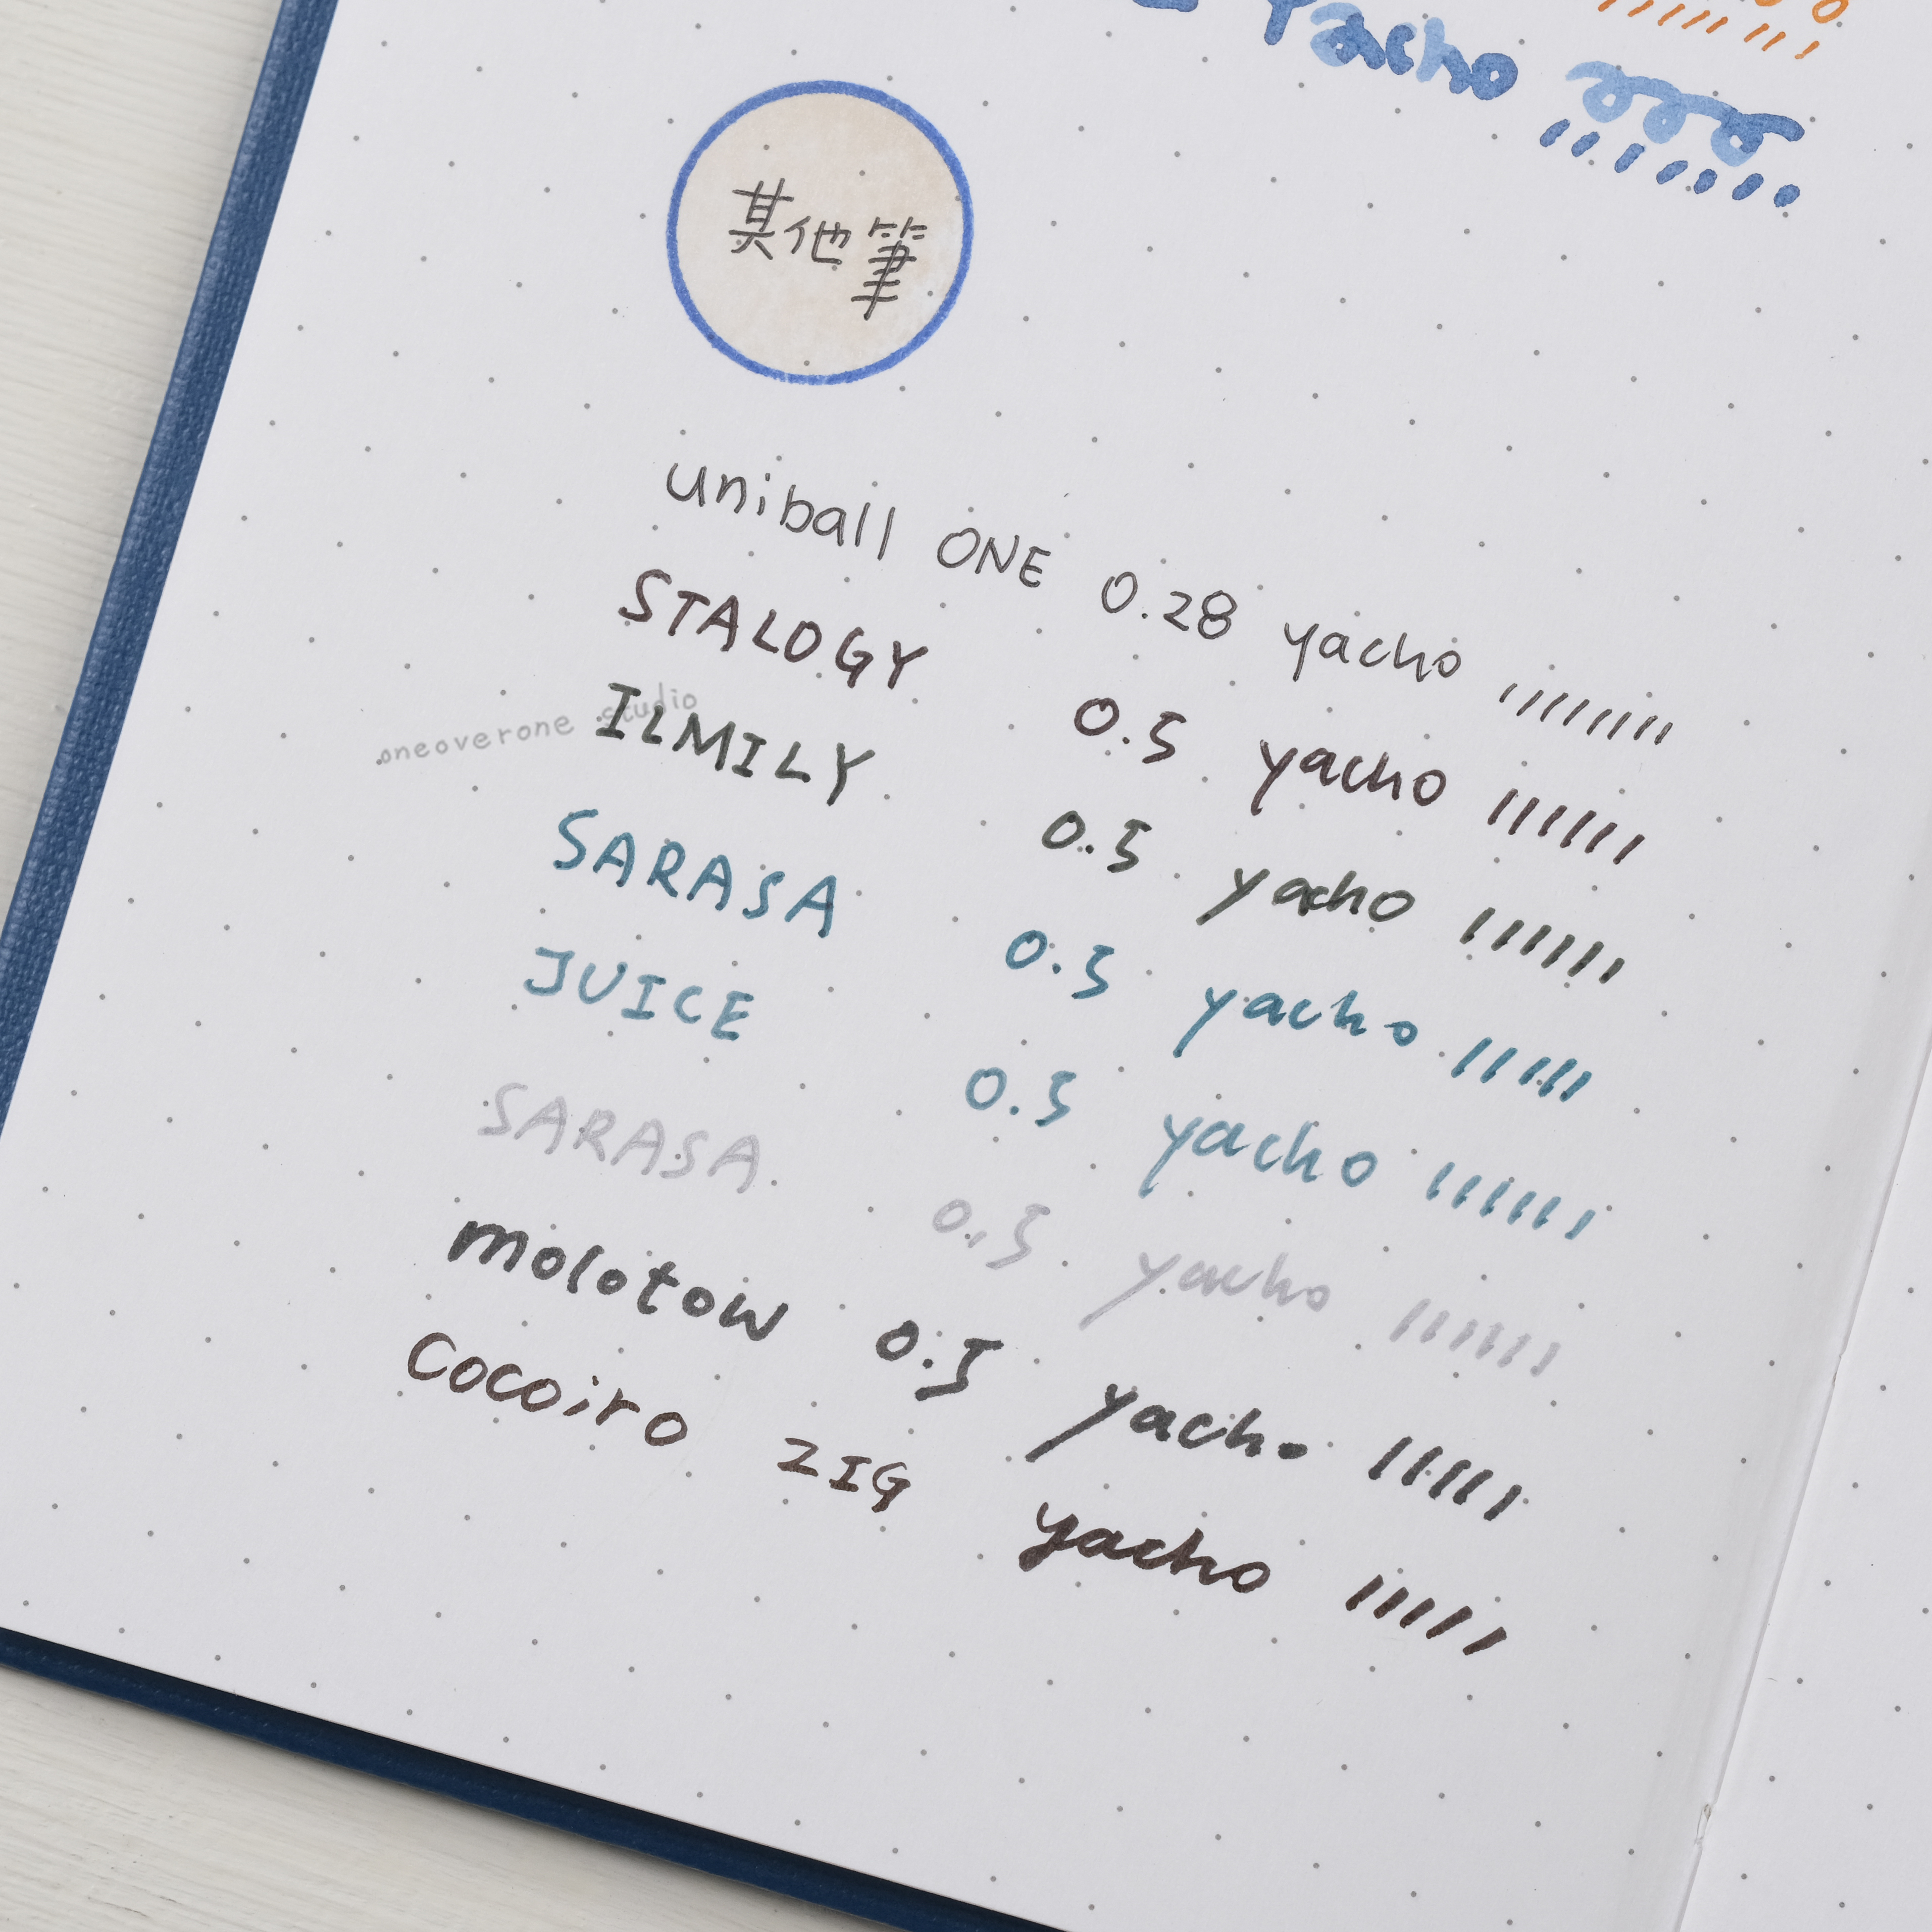 Yacho
其他筆
uniball ONE 0.28 yacho
STALOGY 0.5 yacho
ILMILY 0.5 yacho
SARASA 0.5 yacho
JUICE 0.5 yacho
SARASA 0.5 yacho
molotow 0.5 yacho
Cocoiro ZIG yacho
oneoverone studio